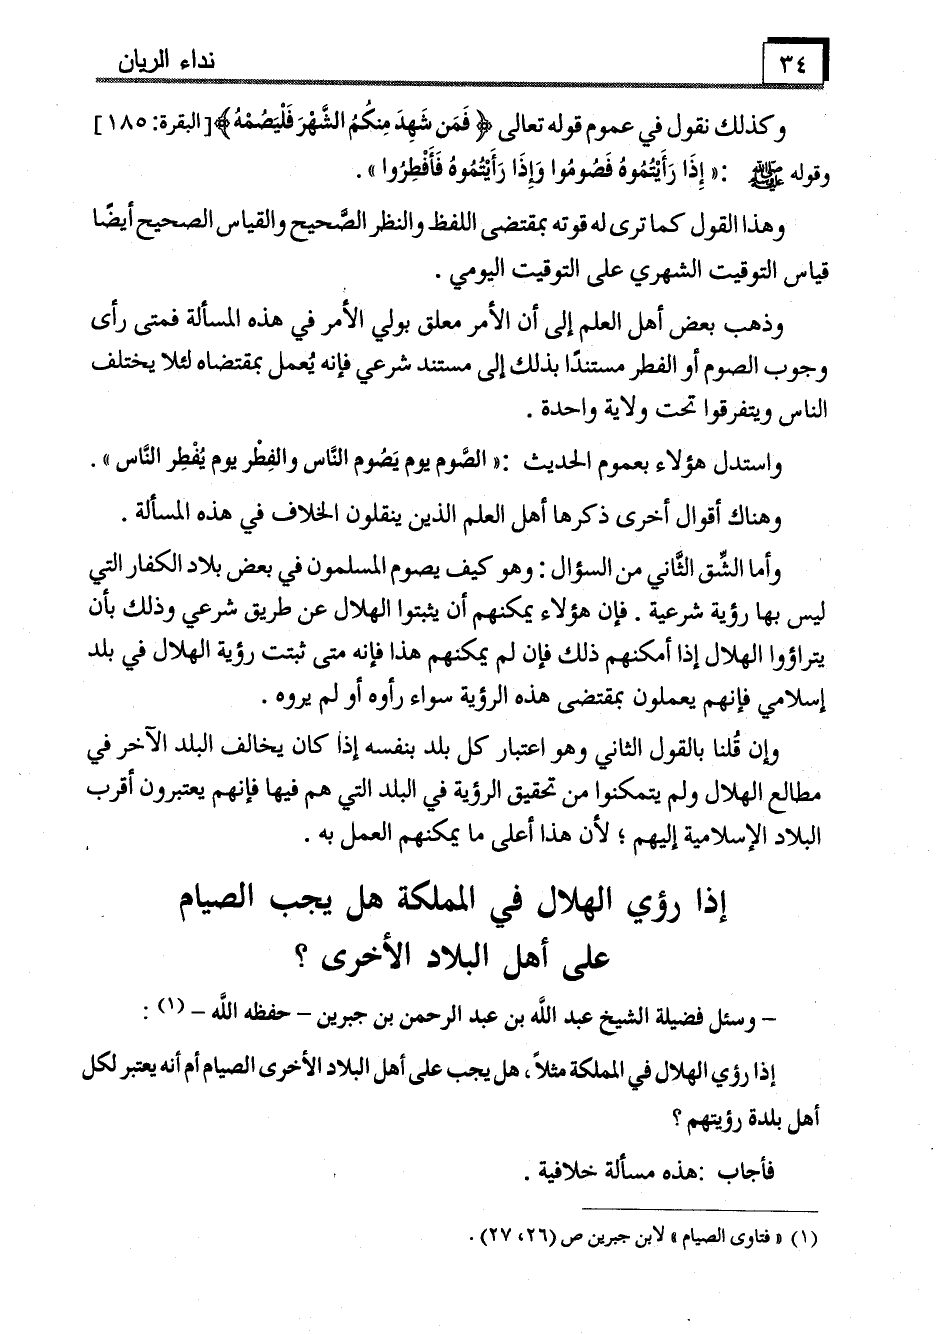 ٣٤
نداء الريان
وكذلك نقول في عموم قوله تعالى ﴿ فَمَن شَهِدَ مِنكُمُ الشَّهْرَ فَلْيَصُمْهُ ﴾ [البقرة: ١٨٥]
وقوله ﷺ : « إِذَا رَأَيْتُمُوهُ فَصُومُوا وَإِذَا رَأَيْتُمُوهُ فَأَفْطِرُوا » .
وهذا القول كما ترى له قوته بمقتضى اللفظ والنظر الصَّحيح والقياس الصحيح أيضًا
قياس التوقيت الشهري على التوقيت اليومي .
وذهب بعض أهل العلم إلى أن الأمر معلق بولي الأمر في هذه المسألة فمتى رأى
وجوب الصوم أو الفطر مستندًا بذلك إلى مستند شرعي فإنه يُعمل بمقتضاه لئلا يختلف
الناس ويتفرقوا تحت ولاية واحدة .
واستدل هؤلاء بعموم الحديث : « الصَّوم يوم يَصُوم النَّاس والفِطْر يوم يُفْطِر النَّاس » .
وهناك أقوال أخرى ذكرها أهل العلم الذين ينقلون الخلاف في هذه المسألة .
وأما الشِّق الثَّاني من السؤال : وهو كيف يصوم المسلمون في بعض بلاد الكفار التي
ليس بها رؤية شرعية . فإن هؤلاء يمكنهم أن يثبتوا الهلال عن طريق شرعي وذلك بأن
يتراؤوا الهلال إذا أمكنهم ذلك فإن لم يمكنهم هذا فإنه متى ثبتت رؤية الهلال في بلد
إسلامي فإنهم يعملون بمقتضى هذه الرؤية سواء رأوه أو لم يروه .
وإن قُلنا بالقول الثاني وهو اعتبار كل بلد بنفسه إذا كان يخالف البلد الآخر في
مطالع الهلال ولم يتمكنوا من تحقيق الرؤية في البلد التي هم فيها فإنهم يعتبرون أقرب
البلاد الإسلامية إليهم ؛ لأن هذا أعلى ما يمكنهم العمل به .
إذا رؤي الهلال في المملكة هل يجب الصيام
على أهل البلاد الأخرى ؟
– وسئل فضيلة الشيخ عبد اللَّه بن عبد الرحمن بن جبرين – حفظه اللَّه – (١) :
إذا رؤي الهلال في المملكة مثلاً، هل يجب على أهل البلاد الأخرى الصيام أم أنه يعتبر لكل
أهل بلدة رؤيتهم ؟
فأجاب : هذه مسألة خلافية .
(١) « فتاوى الصيام » لابن جبرين ص (٢٦، ٢٧) .